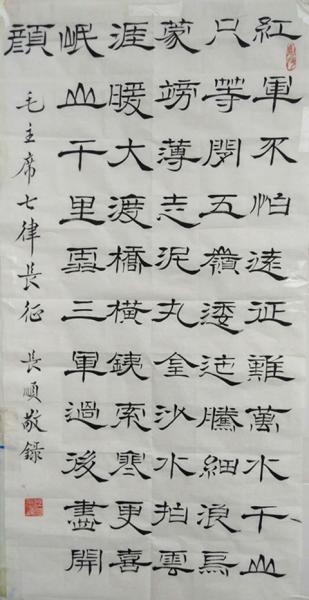 紅軍不怕遠征難萬水千山
只等閑五嶺逶迤騰細浪烏
蒙磅薄走泥丸金沙水拍雲
涯暖大渡橋橫銕索寒更喜
岷山千里雪三軍過後盡開
顏
毛主席七律長征 長順敬錄